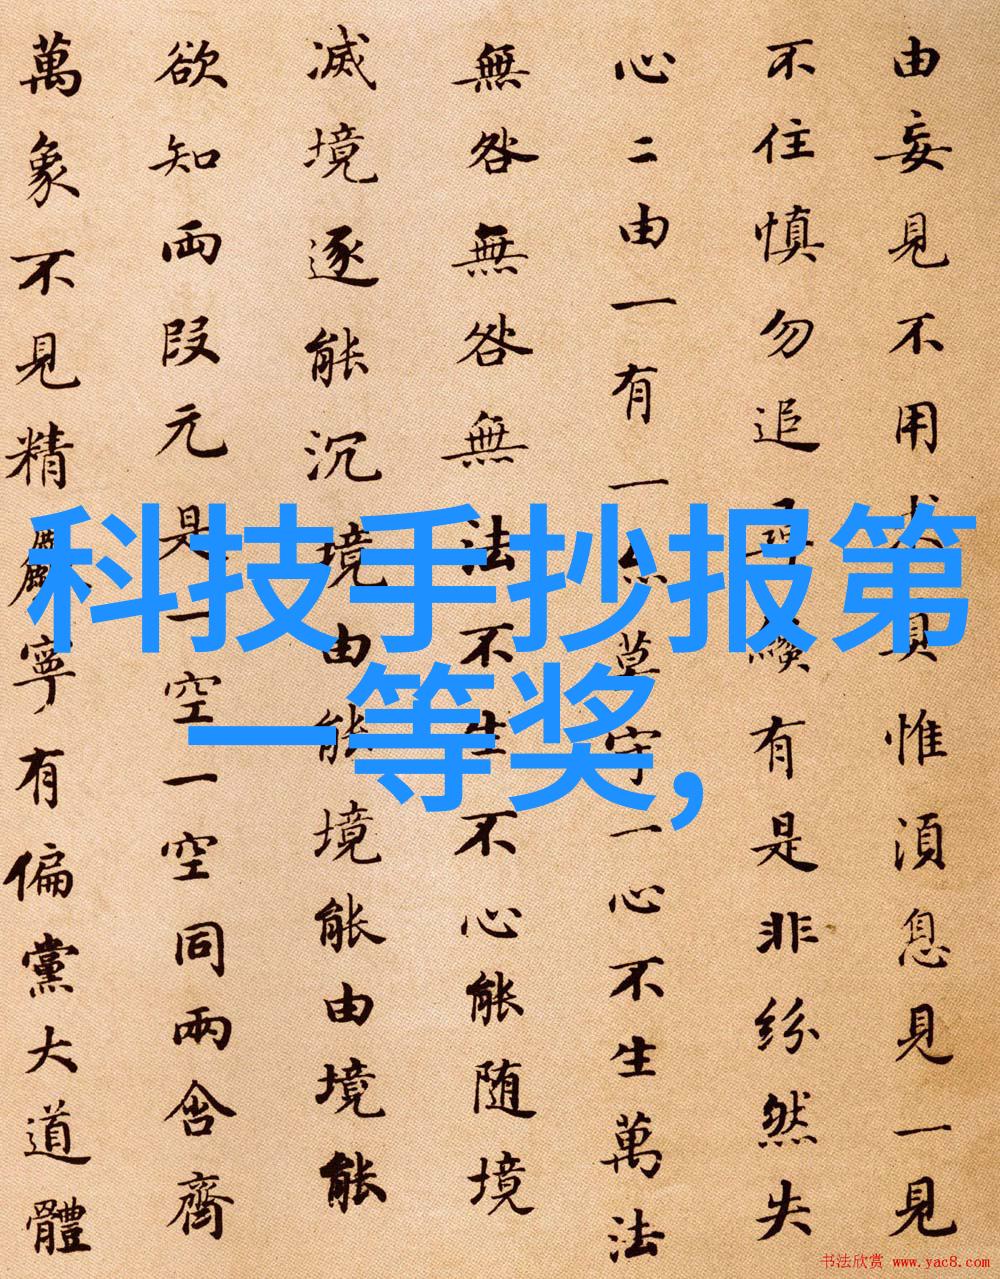 由妄見不用真惟湏息見一見
不住慎勿追有是非紛然失
心二由一有一莫守一心不生萬法
無咎無咎無法不生不心能随境
滅境逐能沉境由能境能由境能
欲知両段元是一空一空同兩含齊
萬象不見精寧有偏黨大道體
科技手抄报第
一等奖,
书法欣赏 www.yac8.com